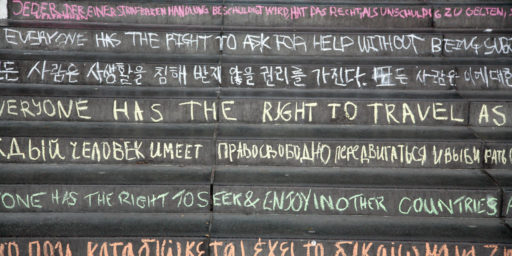 JEDER, DER EINER STRAFBAREN HANDLUNG BESCHULDIGT WIRD HAT DAS RECHT, ALS UNSCHULDIG ZU GELTEN,
EVERYONE HAS THE RIGHT TO ASK FOR HELP WITHOUT BEING
든 사람은 사생활을 침해 받지 않을 권리를 가진다. 모든 사람은 이에 대한
VERYONE HAS THE RIGHT TO TRAVEL AS
ЖДЫЙ ЧЕЛОВЕК ИМЕЕТ ПРАВО СВОБОДНО ПЕРЕДВИГАТЬСЯ И ВЫБИРАТЬ
YONE HAS THE RIGHT TO SEEK & ENJOY IN OTHER COUNTRIES
που καταδιώκεται έχει το δικαίωμα να